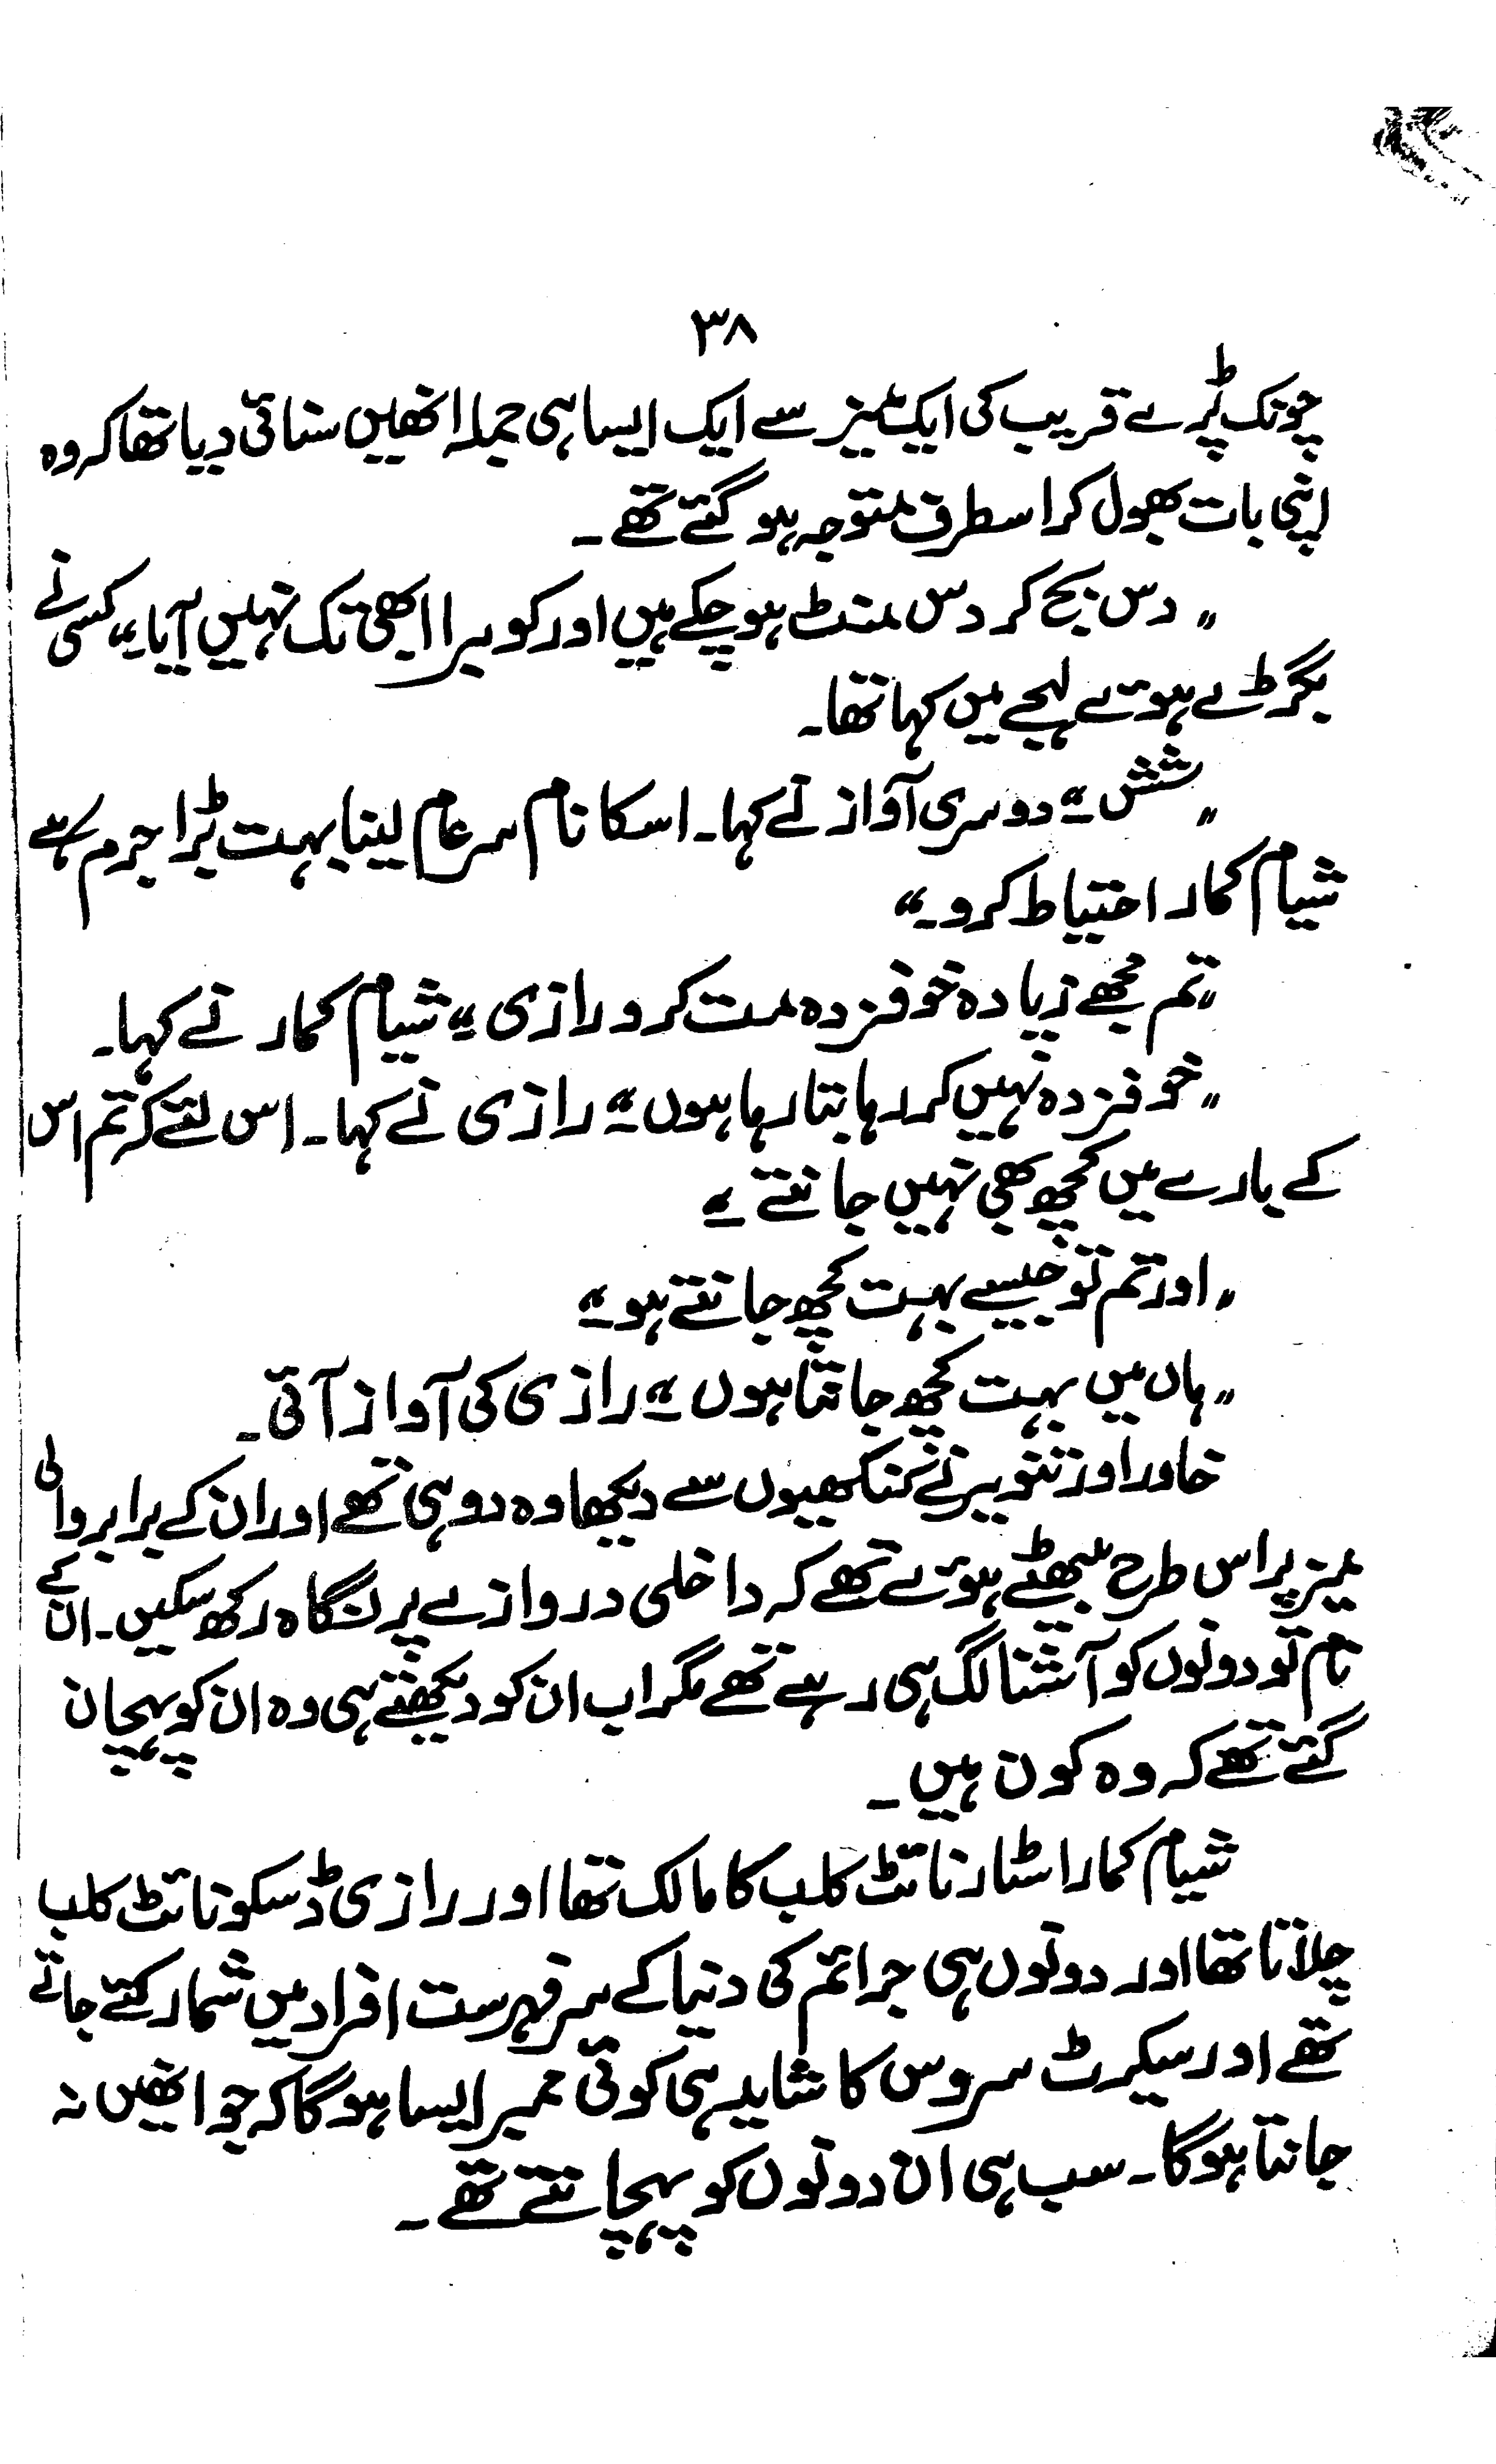 ۳۸
چونک پڑے قریب کی ایک میز سے ایک ایسا ہی جملہ انھیں سنائی دیا تھا کہ وہ
اپنی بات بھول کر اسطرف متوجہ ہو گئے تھے۔
"دس بج کر دس منٹ ہو چکے ہیں اور کوبرا ابھی تک نہیں آیا۔" کسی نے
بگڑے ہوئے لہجے میں کہا تھا۔
"شش۔" دوسری آواز نے کہا۔ اسکا نام سرعام لینا بہت بڑا جرم ہے
شیام کمار احتیاط کرو۔"
"تم مجھے زیادہ خوفزدہ مت کرو رازی۔" شیام کمار نے کہا۔
"خوفزدہ نہیں کر رہا بتا رہا ہوں۔" رازی نے کہا۔ اس لئے کہ تم اس
کے بارے میں کچھ بھی نہیں جانتے۔"
"اور تم تو جیسے بہت کچھ جانتے ہو۔"
"ہاں میں بہت کچھ جانتا ہوں۔" رازی کی آواز آئی۔
خاور اور تنویر نے کنکھیوں سے دیکھا وہ دو ہی تھے اور ان کے برابر والی
میز پر اس طرح بیٹھے ہوئے تھے کہ داخلی دروازے پر نگاہ رکھ سکیں۔ ان کے
نام تو دونوں کو آشنا لگ ہی رہے تھے مگر اب ان کو دیکھتے ہی وہ ان کو پہچان
گئے تھے کہ وہ کون ہیں۔
شیام کمار اسٹار نائٹ کلب کا مالک تھا اور رازی ڈسکو نائٹ کلب
چلاتا تھا اور دونوں ہی جرائم کی دنیا کے سرفہرست افراد میں شمار کئے جاتے
تھے اور سیکرٹ سروس کا شاید ہی کوئی ممبر ایسا ہوگا کہ جو انھیں نہ
جانتا ہوگا۔ سب ہی ان دونوں کو پہچانتے تھے۔